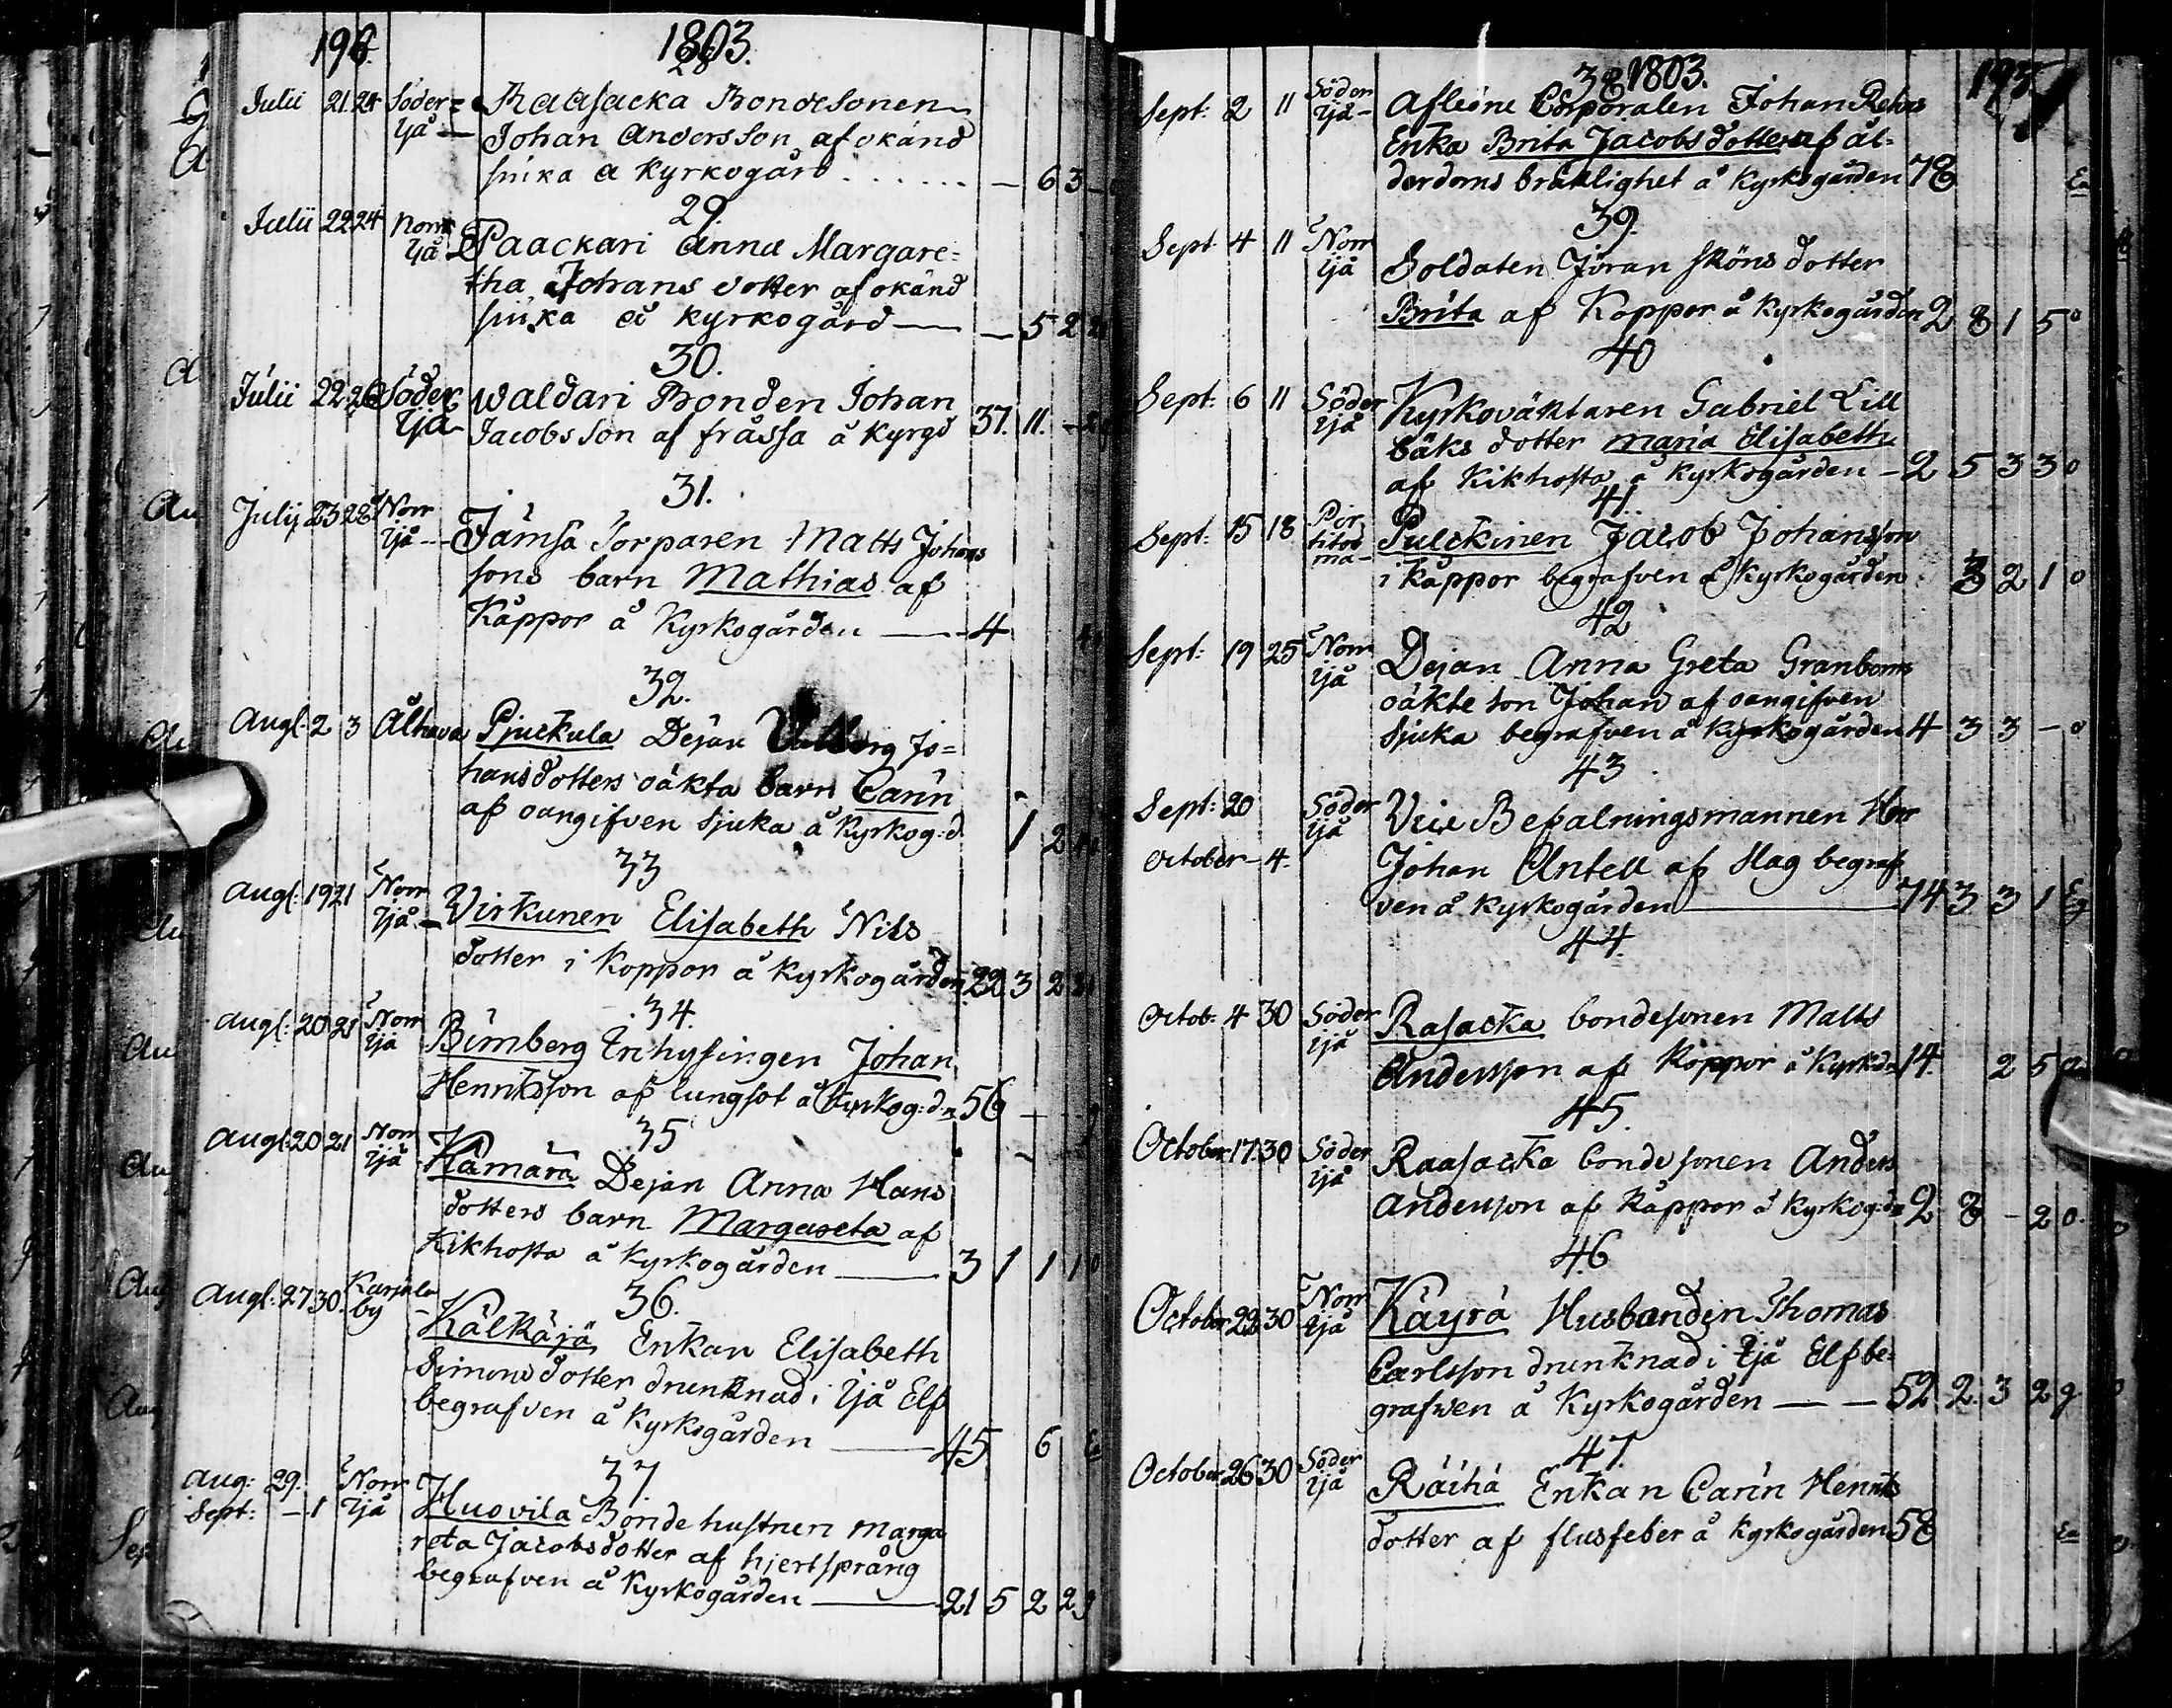 196. 1803.
28
Julii 21. 24 Söder= Raasacka Bondesonen
Ijå — Johan Andersson af okänd
siuka a kyrkogård . . . . . . — 6 3 —
29.
Julii 22 24 Norr Paackari Anna Margare=
Ijå tha Johans dotter af okänd
siuka å kyrkogård — — 5 2
30.
Julii 22 26 Söder Waldari Bonden Johan
Ijå Jacobsson af frässa å kyrgd 37. 11. —
31.
Julij 23 28 Norr Jämsä Torparen Matts Johans
Ijå — sons barn Mathias af
Kåppor å Kyrkogården — 4
32.
Augs: 2 3 Alhava Pjuckula Dejan Valborg Jo=
hansdotters oäkta barn Carin
af oangifven sjuka å Kyrkog:d 1 2
33
Augs: 19 21 Norr Virkunen Elisabeth Nils
Ijå — dotter i Koppor å kyrkogården 22 3 2
34.
Augs: 20 21 Norr Bimberg Inhysingen Johan
Ijå Henriksson af lungsot å Kyrkog:dn 56 —
35
Augs: 20 21 Norr Kämärä Dejan Anna Hans
Ijå dotters barn Margareta af
Kikhosta å kyrkogården — 3 1 1 10
36.
Augs: 27 30. Karjala Kälkäjä Enkan Elisabeth
by Simonsdotter drunknad i Ijå Elf
begrafven å Kyrkogården — 45 6
37
Aug: 29. Norr Huovila Bondehustrun Marga
Sept: — 1 Ijå reta Jacobsdotter af hjertsprång
begrafven å Kyrkogården — 21 5 2 29
38 1803. 195
Sept: 2 11 Söder Aflidne Corporalen Johan Rehns
Ijå — Enka Brita Jacobsdotter af ål=
derdoms bräklighet å Kyrkogården 78
39.
Sept 4 11 Norr Soldaten Jöran Sköns dotter
Ijå Brita af Koppor å Kyrkogården 2 8 1 5 0
40
Sept: 6 11 Söder Kyrkoväktaren Gabriel Lill
Ijå bäks dotter Maria Elisabeth
af Kikhosta å Kyrkogården — 2 5 3 3 0
41.
Sept: 15 18 Pulckinen Jacob Johansson
i Kåppor begrafven å Kyrkogården 3 2 1 0
42
Sept: 19 25 Norr Dejan Anna Greta Granboms
Ijå oäkte son Johan af oangifven
Sjuka begrafven å Kyrkogården 4 3 3 — 0
43
Sept: 20 Söder Vice Befalningsmannen Herr
Ijå
October — 4. Johan Antell af Slag begraf
ven å Kyrkogården — 74 3 3 1
44.
Octob: 4 30 Söder Rasacka bondesonen Matts
Ijå Andersson af Koppor å Kyrk:dn 14. 2 5
45.
October 17. 30 Söder Raasacka bondesonen Anders
Ijå Andersson af Kåppor å Kyrkog:dn 2 8 — 2 0.
46
October 23 30 Norr Käyrä Husbonden Thomas
Ijå Carlsson drunknad i Ijå Elf be=
grafven å Kyrkogården — — 52 2. 3 2 9
47.
October 26 30 Söder Räihä Enkan Carin Henriks
Ijå dotter af flusfeber å Kyrkogården 58